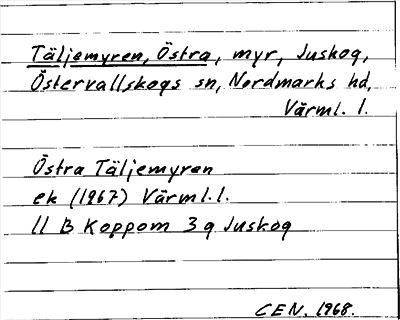 Täljemyren, Östra, myr, Juskog,
Östervallskogs sn, Nordmarks hd,
Värml. l.
Östra Täljemyren
ek (1967) Värml.l.
11 B Koppom 3 g Juskog
CEN. 1968.